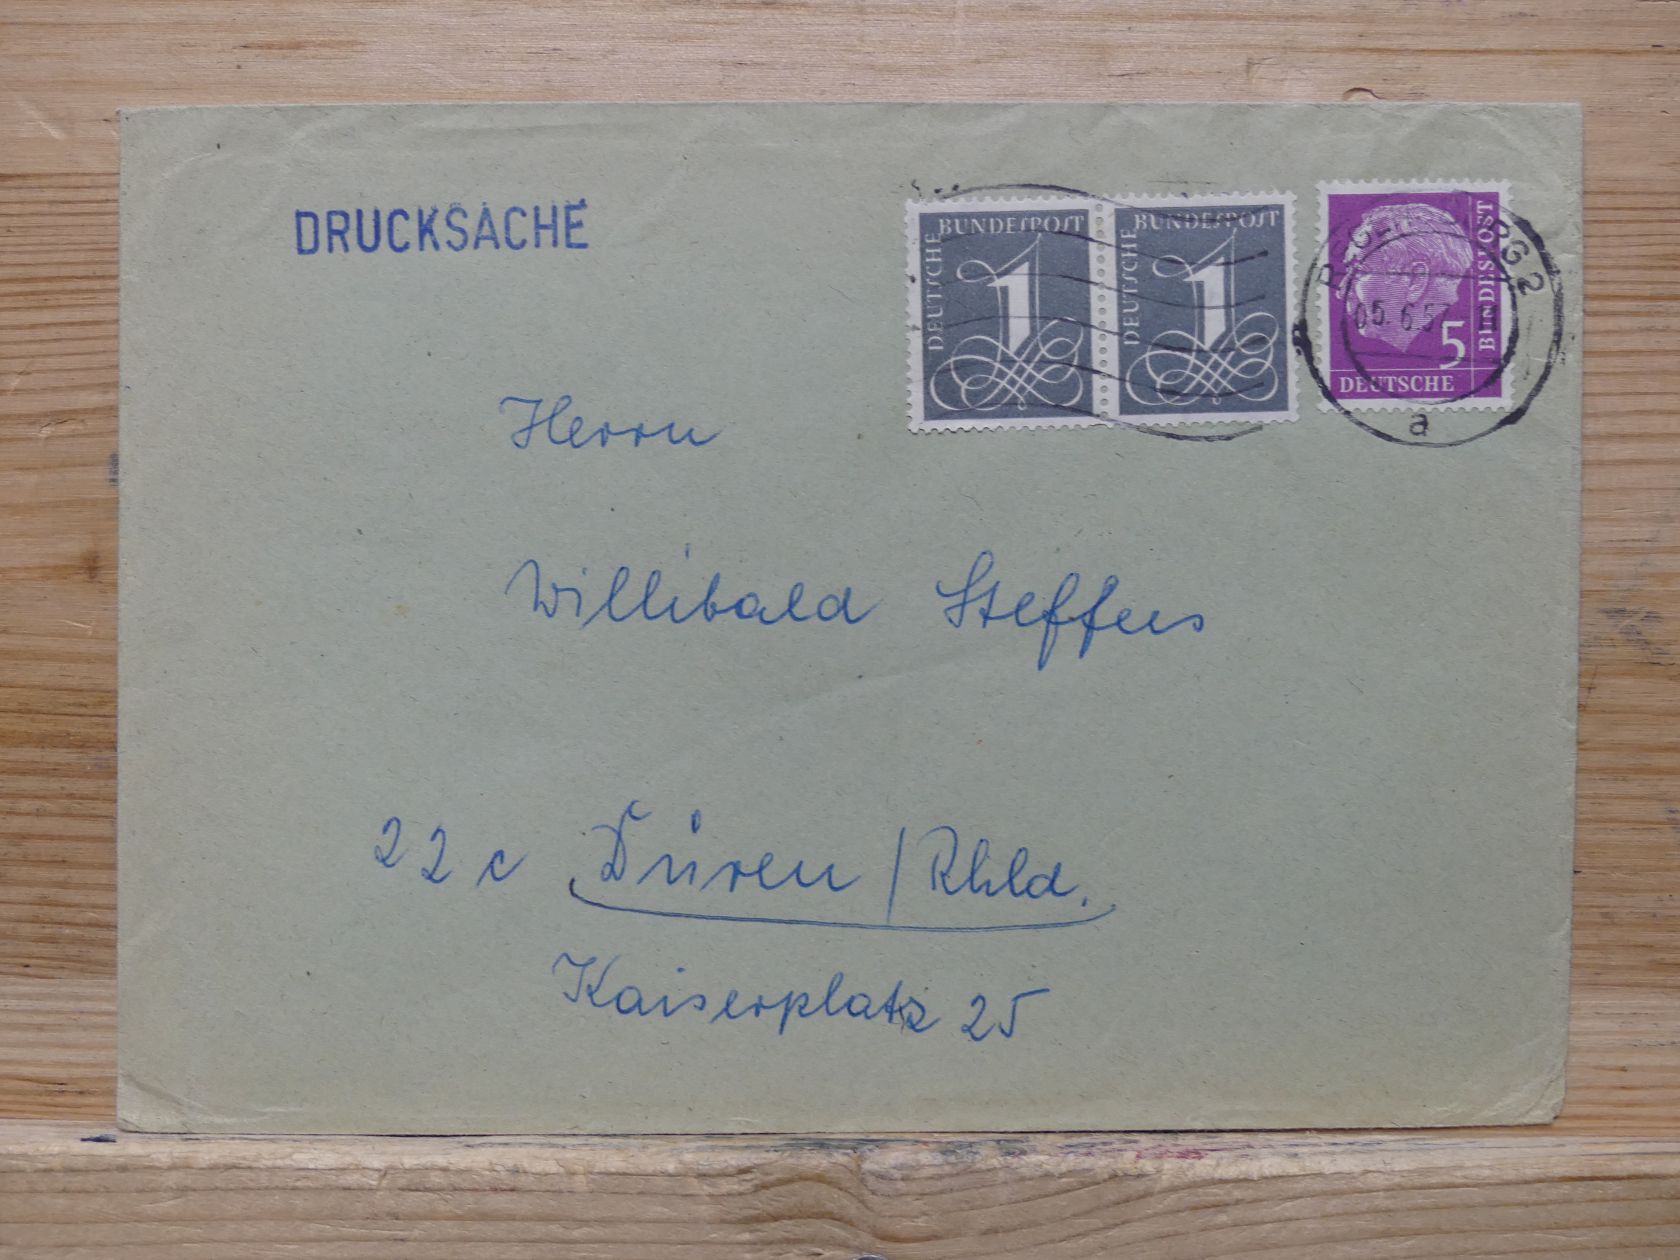 DRUCKSACHE
DEUTSCHE BUNDESPOST
1
DEUTSCHE BUNDESPOST
1
DEUTSCHE BUNDESPOST
5
2
05. 6.57
a
Herrn
Willibald Steffens
22c Düren / Rhld.
Kaiserplatz 25